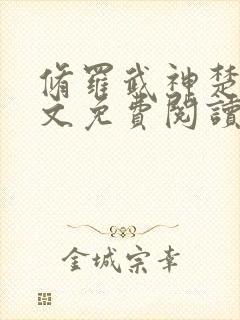 脩羅武神楚
文免費閱讀
金城宗幸